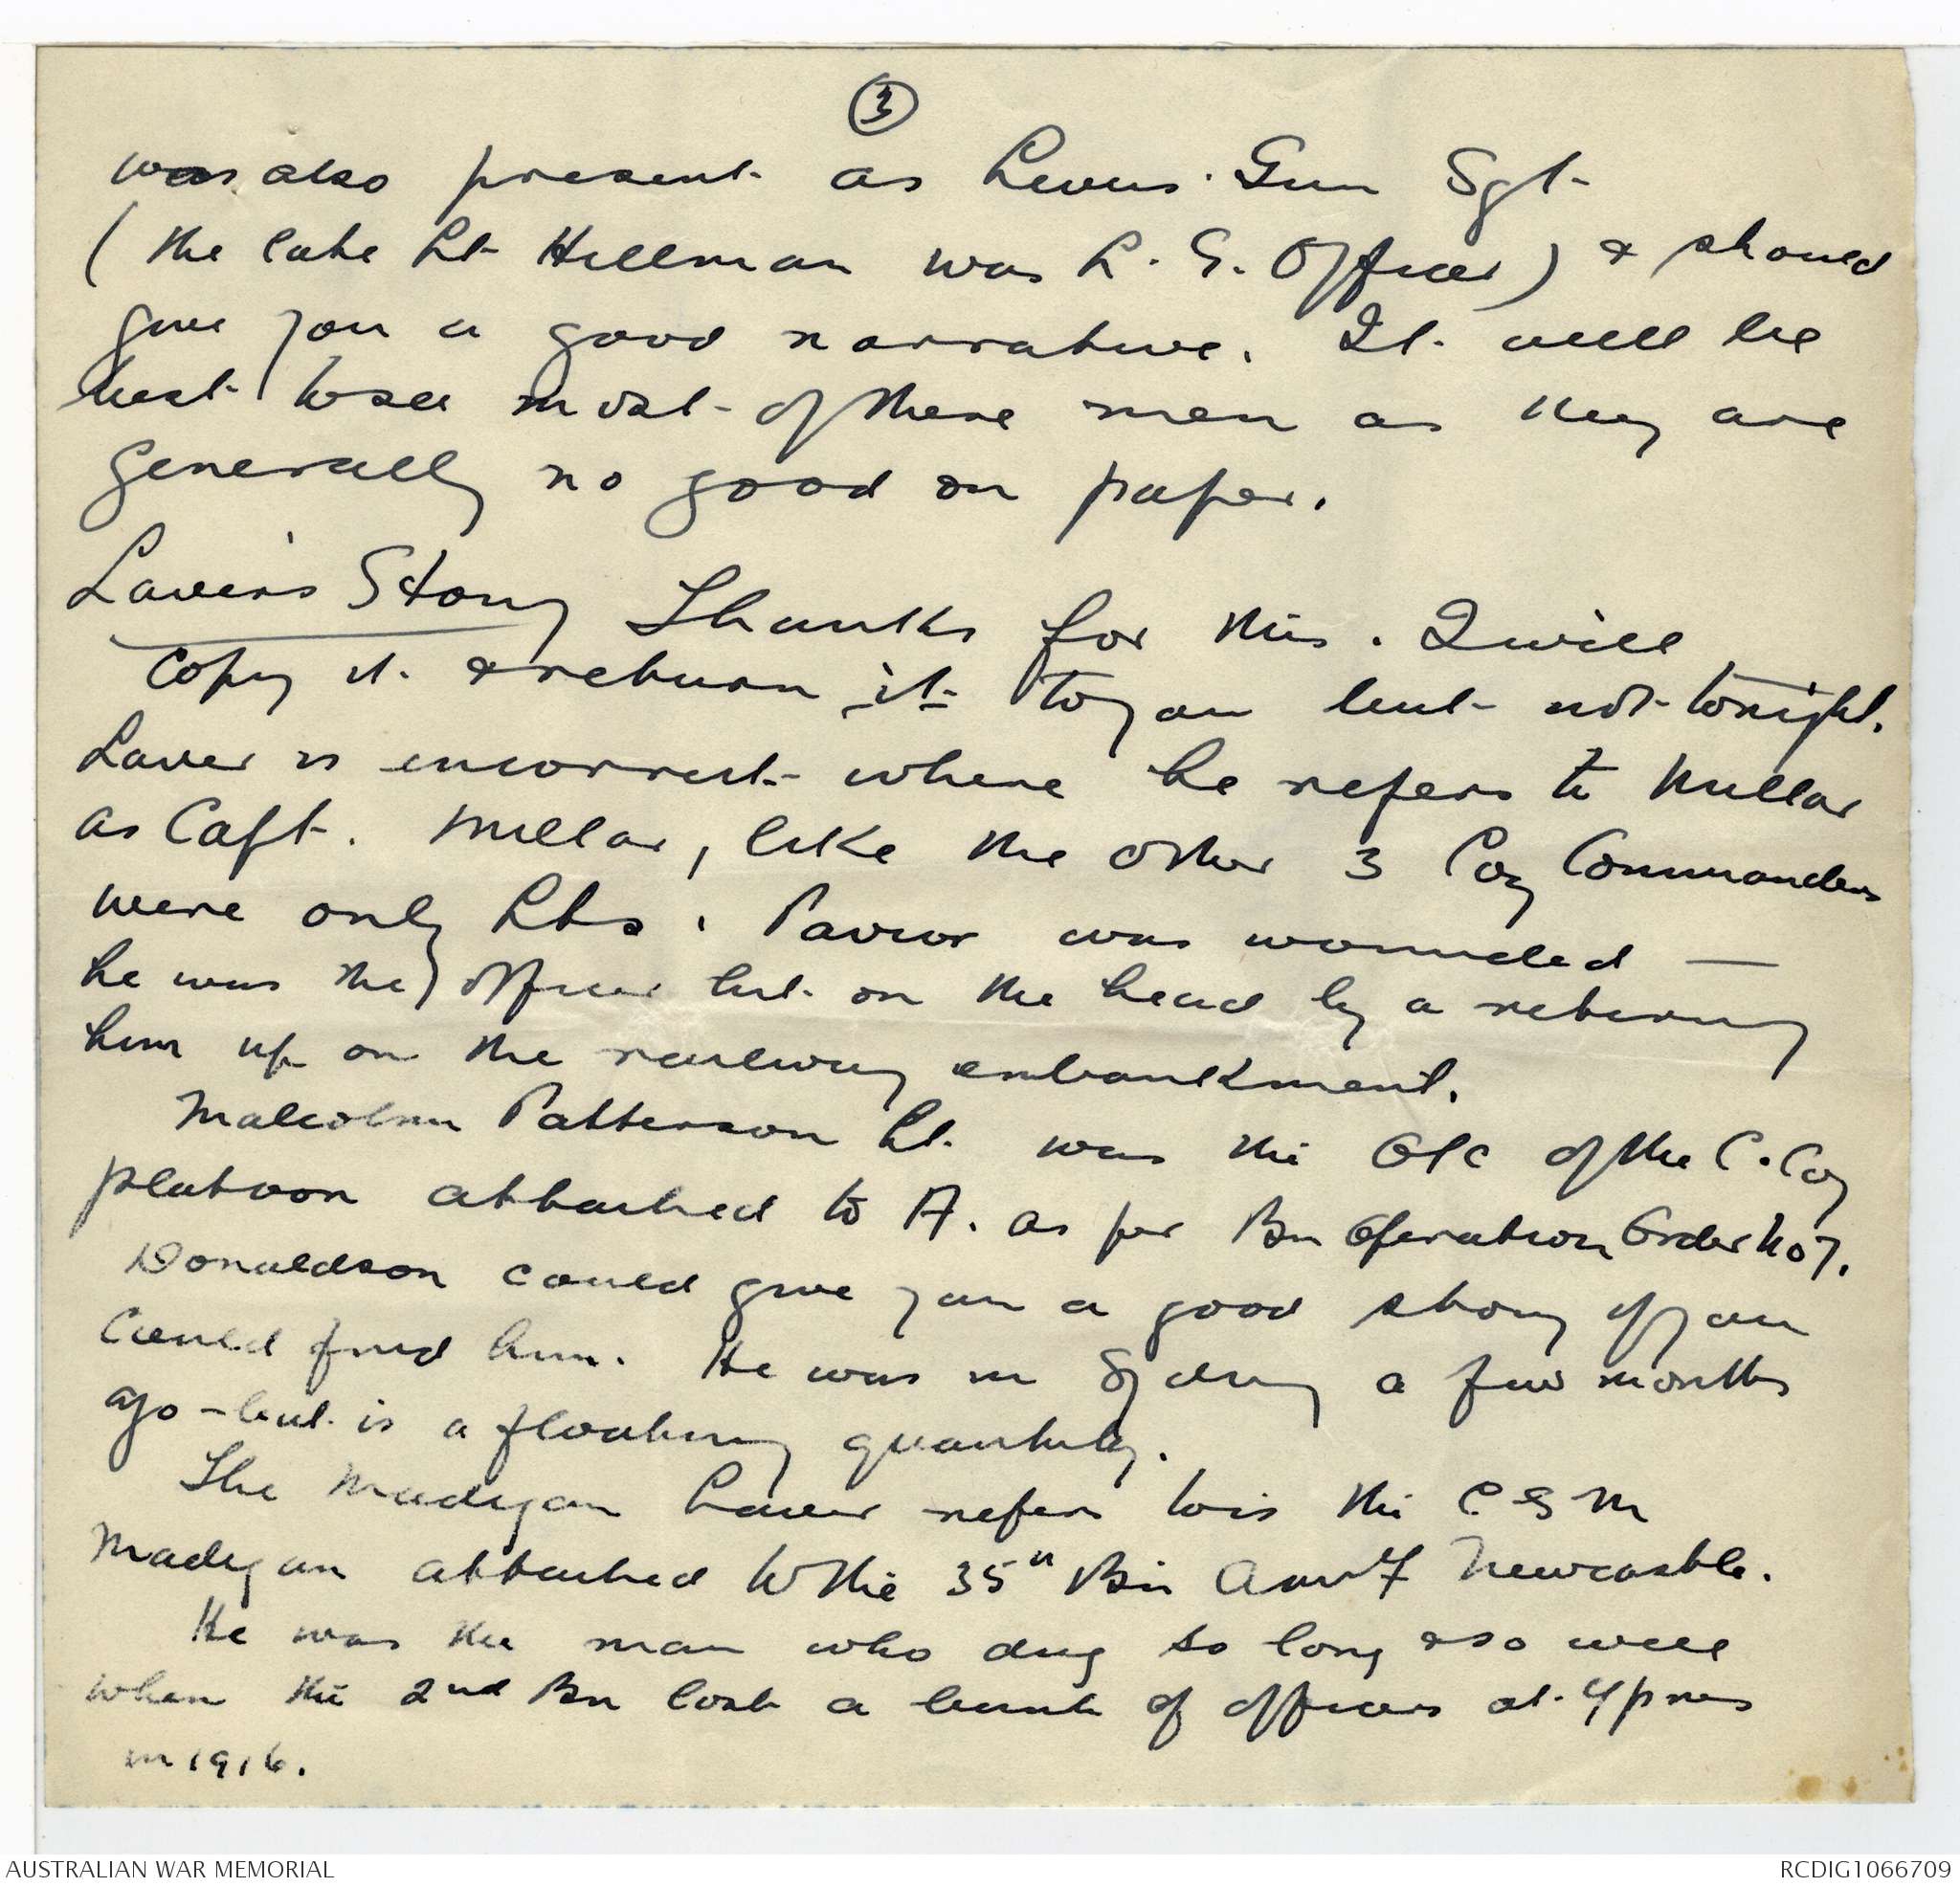 3
was also present as Lewis Gun Sgt
(the late Lt Hillman was L. G. Officer) & should
give you a good narrative. It will be
best to see most of these men as they are
generally no good on paper.
Laver's Story Thanks for this. I will
copy it & return it to you but not tonight.
Laver is incorrect where he refers to Millar
as Capt. Millar, like the other 3 Coy Commanders
were only Lts. Pavior was wounded —
he was the officer hit on the head by a
him up on the railway embankment.
Malcolm Patterson Lt. was the O/C of the C. Coy
platoon attached to A. as per Bn Operation Order No 7.
Donaldson could give you a good story if you
could find him. He was in Sydney a few months
ago - but is a floating quantity.
The Madigan Laver refers to is the C S M
Madigan attached to the 35th Bn AMF Newcastle.
He was the man who dug so long & so well
when the 2nd Bn lost a bunch of officers at Ypres
in 1916.
AUSTRALIAN WAR MEMORIAL
RCDIG1066709